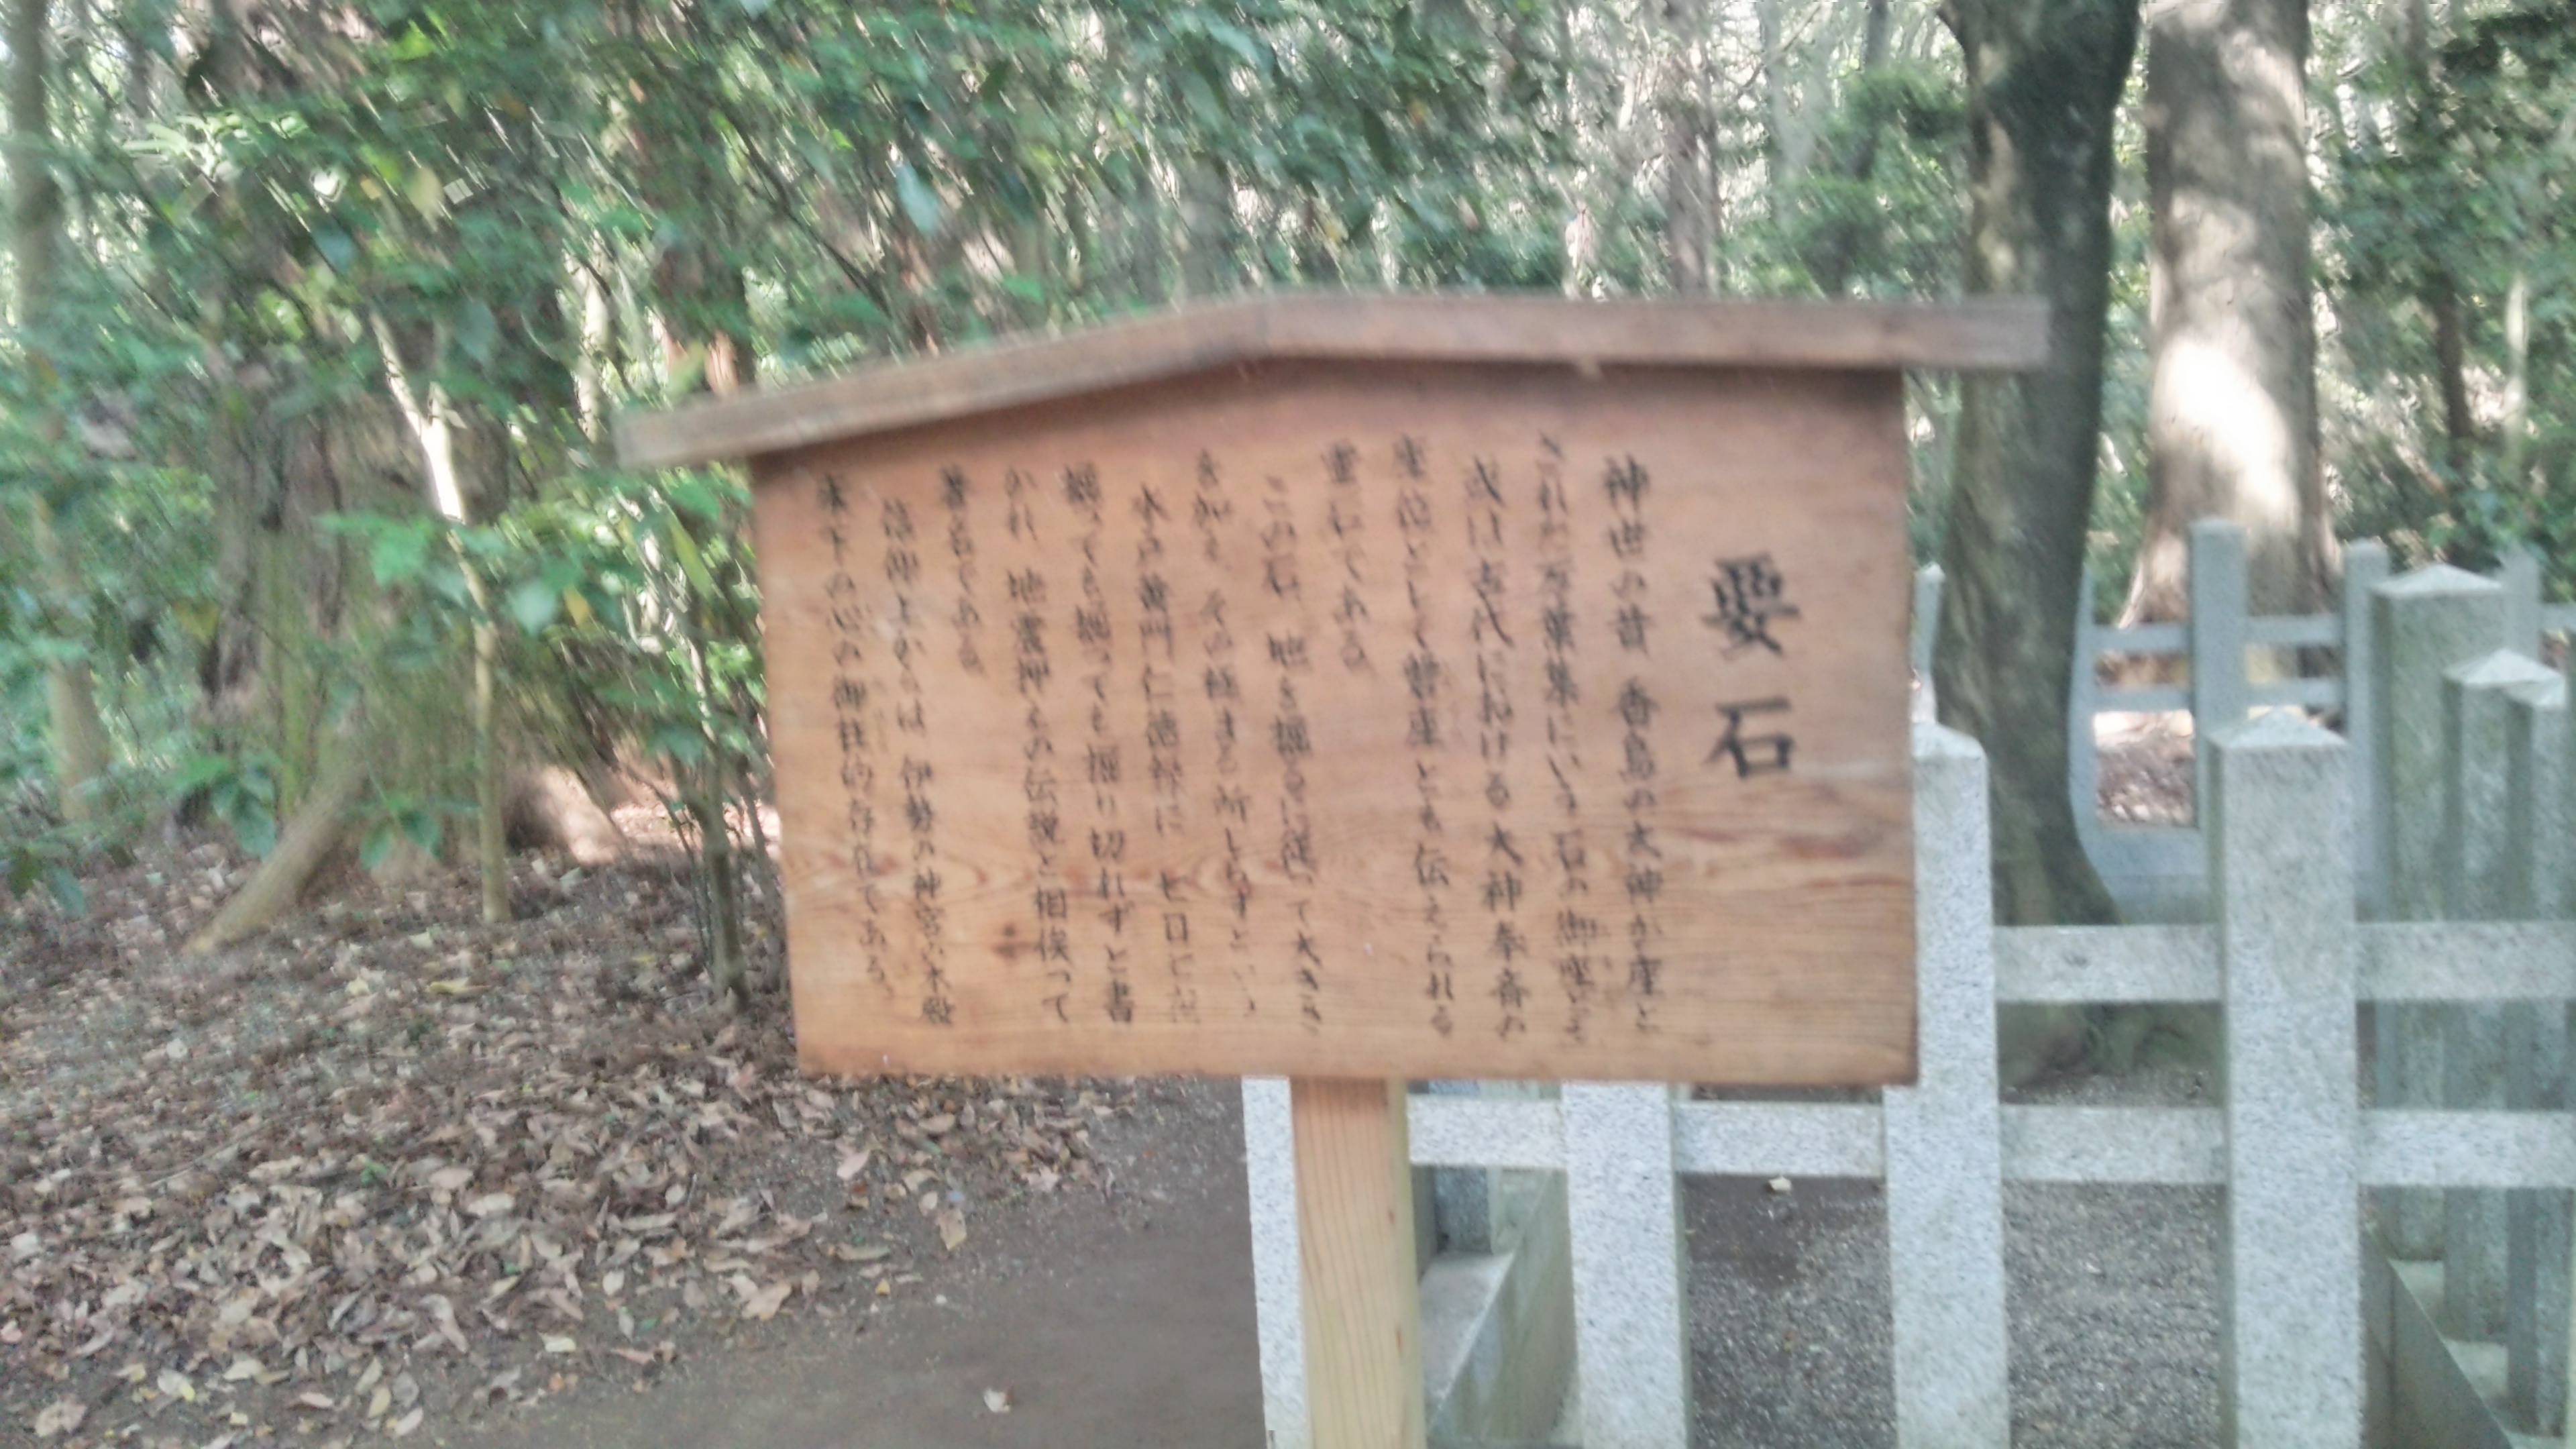 要石
神世の昔 香島の大神が座と
された万葉集にいう石の御座とも
或は古代における大神奉斎の
座位として磐座とも伝えられる
霊石である
この石 地を掘るに従って大きさ
を加え その極まる所しらずという
水戸黄門仁徳録に 七日七夜
掘っても掘っても掘り切れずと書
かれ 地震押えの伝説と相俟って
著名である
信仰上からは 伊勢の神宮の本殿
床下の心の御柱的存在である